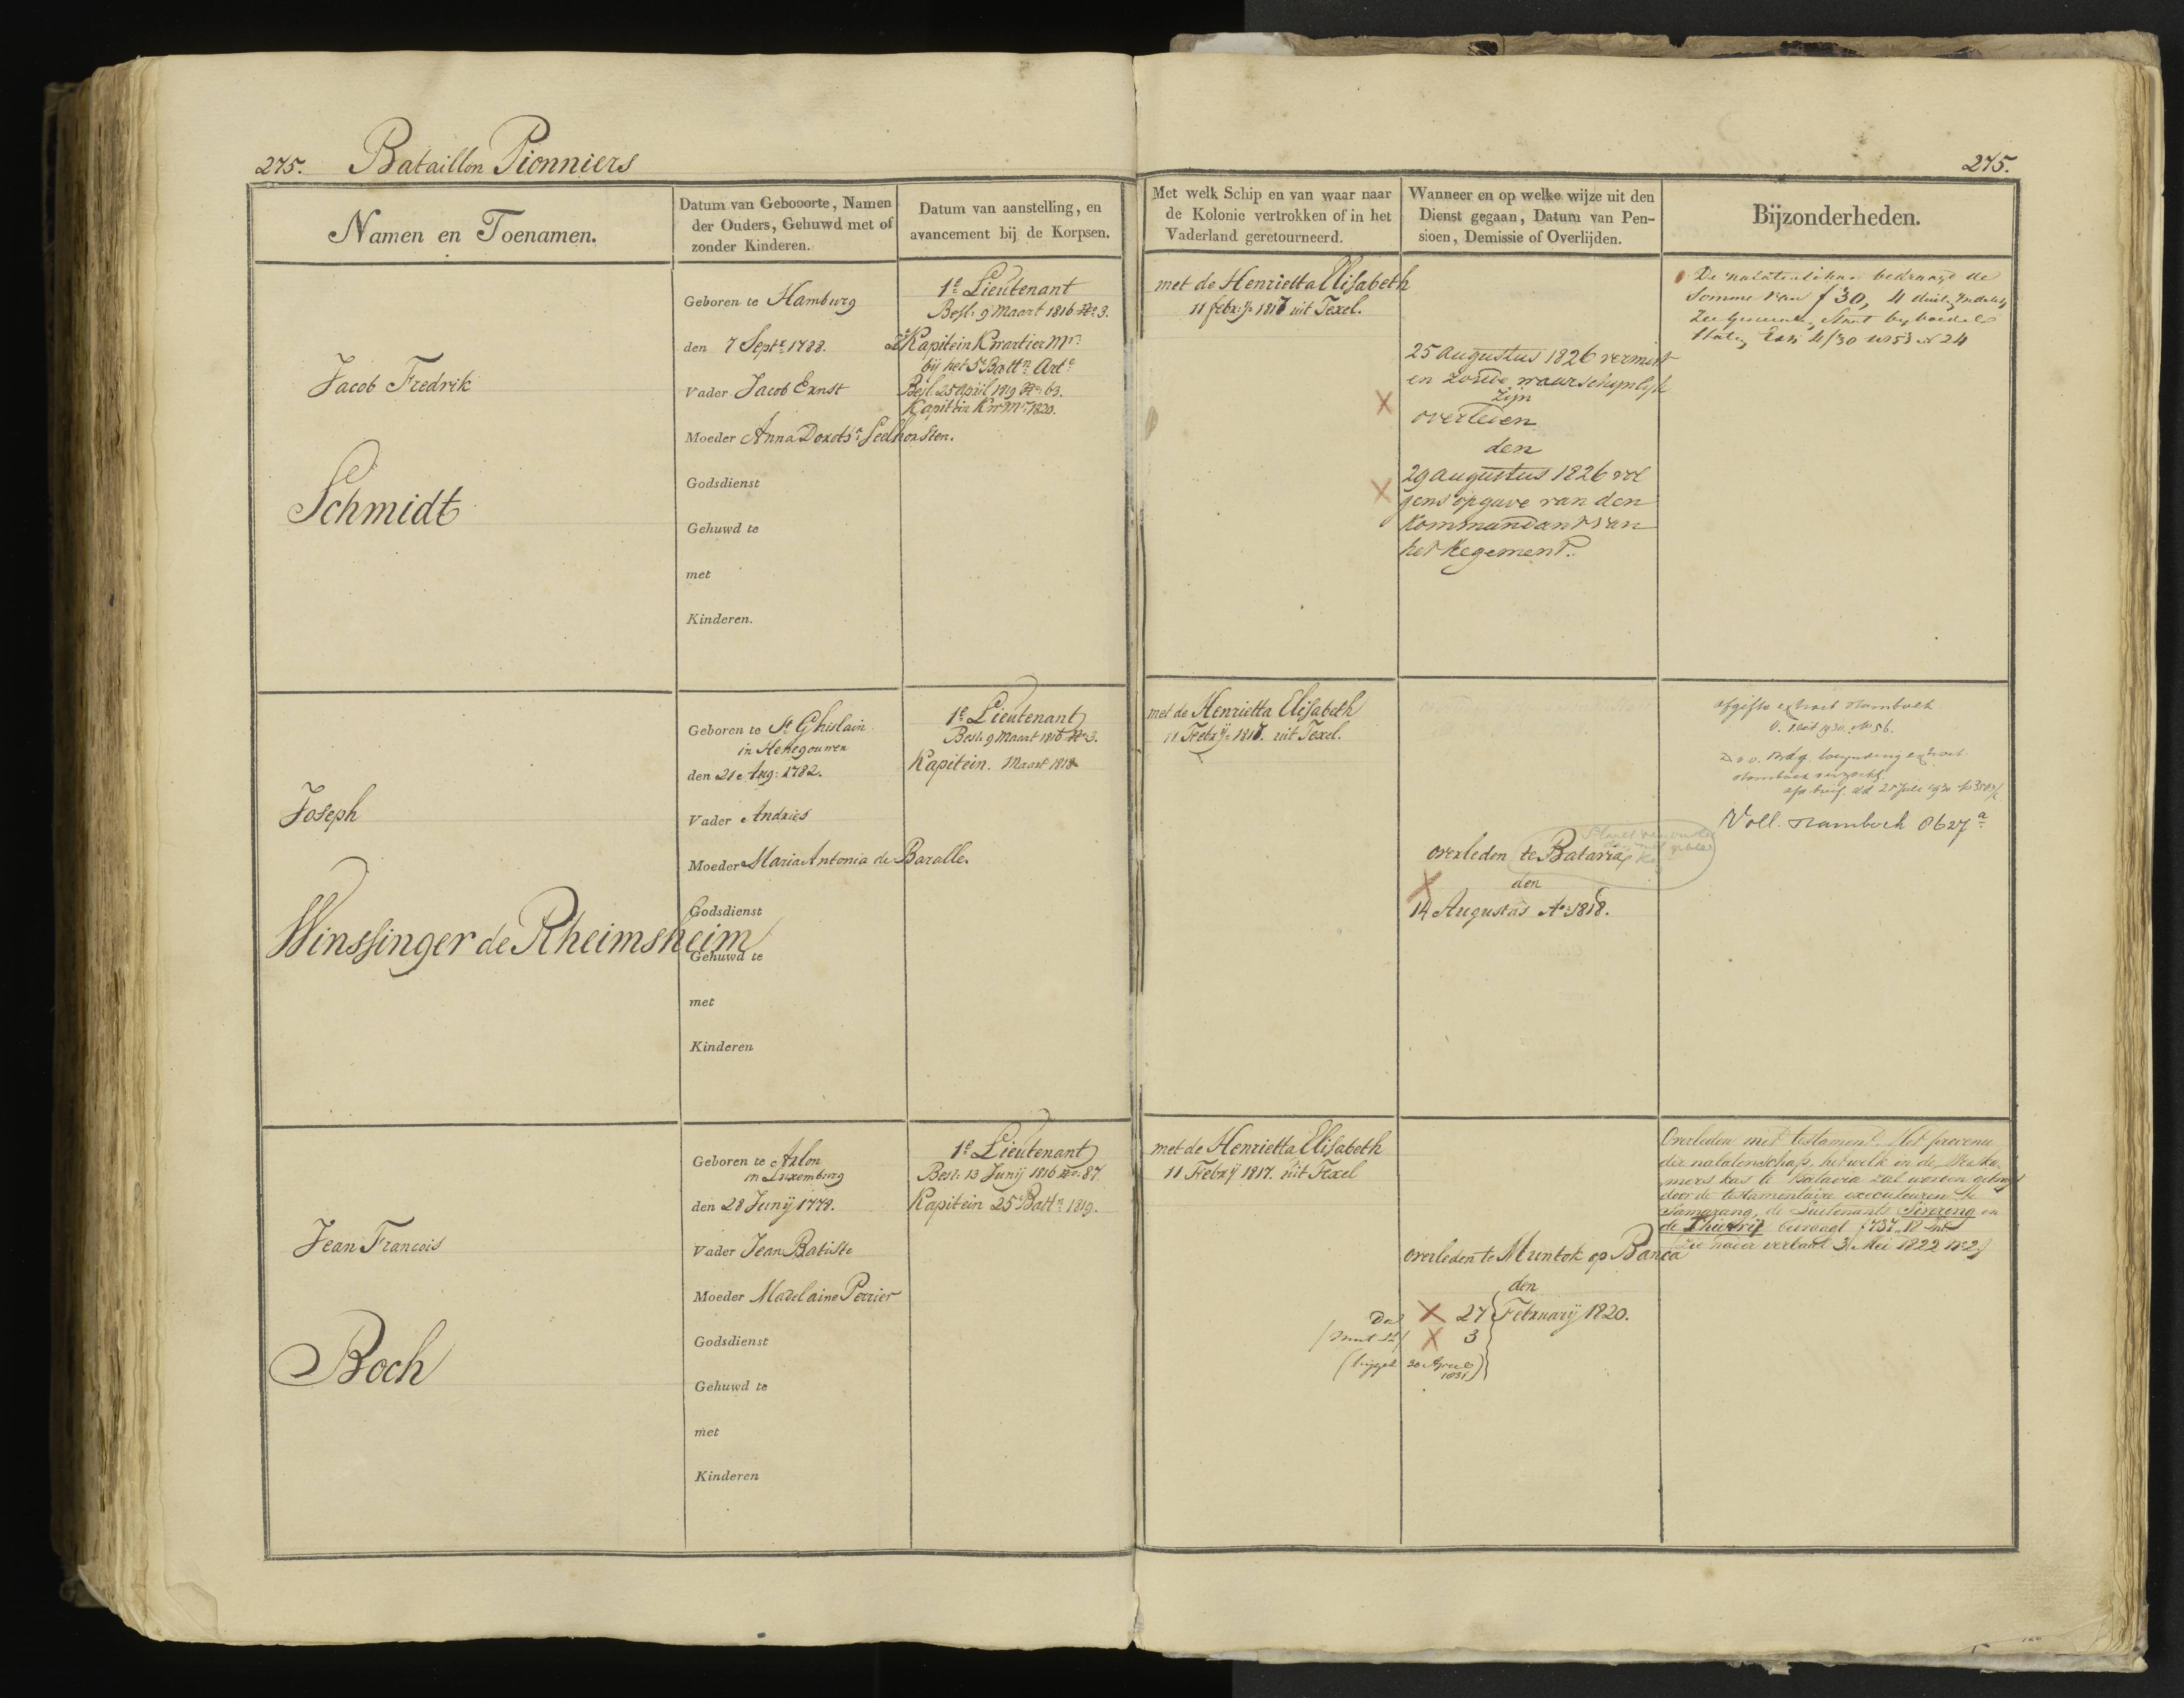 275. Bataillon Pionniers
Namen en Toenamen.
Datum van Gebooorte, Namen
der Ouders, Gehuwd met of
zonder Kinderen.
Datum van aanstelling, en
avancement bij de Korpsen.
275.
Met welk Schip en van waar naar
de Kolonie vertrokken of in het
Vaderland geretourneerd.
Wanneer en op welke wijze uit den
Dienst gegaan, Datum van Pen-
sioen, Demissie of Overlijden.
Bijzonderheden.
Jacob Fredrik
Schmidt
Geboren te Hamburg
den 7 Septr. 1788.
Vader Jacob Ernst
Moeder Anna Dorots
Godsdienst
Gehuwd te
met
Kinderen.
1e Lieutenant
Besl. 9 Maart 1816 No 3.
Kapitein Kwartier Mr
bij het 5e Battn Arte
Besl. 25 april 1819 No 63.
Kapitein Kw Mr 1820.
met de Henrietta Elisabeth
11 febrij 1817 uit Texel.
25 augustus 1826 vermist
en zoude waarschynlyk
zijn
overleden
den
29 augustus 1826 vol
gens opgave van den
Kommandant van
het Regement.
De nalatenschap bedraagt de
Somme van f 30, 4
Joseph
Winssinger de Rheimsheim
Geboren te St Ghislain
in Henegouwen
den 21 Aug: 1782.
Vader Andries
Moeder Maria Antonia de Baralle.
Godsdienst
Gehuwd te
met
Kinderen
1e Lieutenant
Besl. 9 Maart 1816 No 3.
Kapitein. Maart 1818
met de Henrietta Elisabeth
11 Febrij 1817. uit Texel.
overleden te Batavia
den
14 Augustus Ao 1818.
afgifte extract stamboek
No 56.
extract
stamboek verzocht
25 Juli 1930
Voll. stamboek
Jean Francois
Boch
Geboren te Arlon
in Luxemburg
den 28 Junij 1778.
Vader Jean Batiste
Moeder Madelaine Perrier
Godsdienst
Gehuwd te
met
Kinderen
1e Lieutenant
Besl. 13 Junij 1816 No 87.
Kapitein 25e Battn 1819.
met de Henrietta Elisabeth
11 Febrij 1817. uit Texel
overleden te Muntok op Banca
den
27 February 1820.
3
Overleden met testament. Het provenu
der nalatenschap, hetwelk in de
kas te Batavia zal worden
door de testamentaire executeuren te
Samarang, de Luitenants en
de bedraagt f 737
Zie nader verbaal 31 Mei 1822